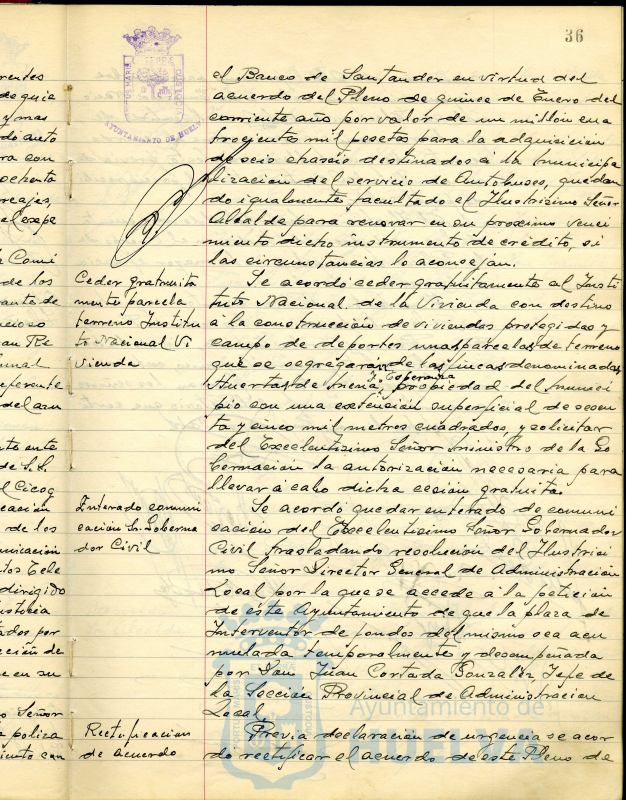 36
el Banco de Santander en virtud del
acuerdo del Pleno de quince de Enero del
corriente año por valor de un millón cua
trocientas mil pesetas para la adquisición
de seis chassis destinados a la municipa
lización del servicio de Autobuses, quedan
do igualmente facultado el Ilustrísimo Señor
Alcalde para renovar en su próximo venci
miento dicho instrumento de crédito, si
las circunstancias lo aconsejan.
Ceder gratuita
mente parcela
terreno Institu
to Nacional Vi
vienda
Se acordó ceder gratuitamente al Insti
tuto Nacional de la Vivienda con destino
a la construcción de viviendas protegidas y
campo de deportes unas parcelas de terreno
que se segregarán de las fincas denominadas
Huertas de Mena, y Esperanza propiedad del munici
pio con una extensión superficial de sesen
ta y cinco mil metros cuadrados, y solicitar
del Excelentísimo Señor Ministro de la Go
bernación la autorización necesaria para
llevar a cabo dicha cesión gratuita.
Enterado comuni
cación Sr. Goberna
dor Civil
Se acordó quedar enterado de comuni
cación del Excelentísimo Señor Gobernador
Civil trasladando resolución del Ilustrísi
mo Señor Director General de Administración
Local por la que se accede a la petición
de éste Ayuntamiento de que la plaza de
Interventor de fondos del mismo sea acu
mulada temporalmente y desempeñada
por Don Juan Cortada González Jefe de
la Sección Provincial de Administración
Local.
Rectificación
de acuerdo
Previa declaración de urgencia se acor
dó rectificar el acuerdo de este Pleno de
AYUNTAMIENTO DE HUELVA
Ayuntamiento de
HUELVA